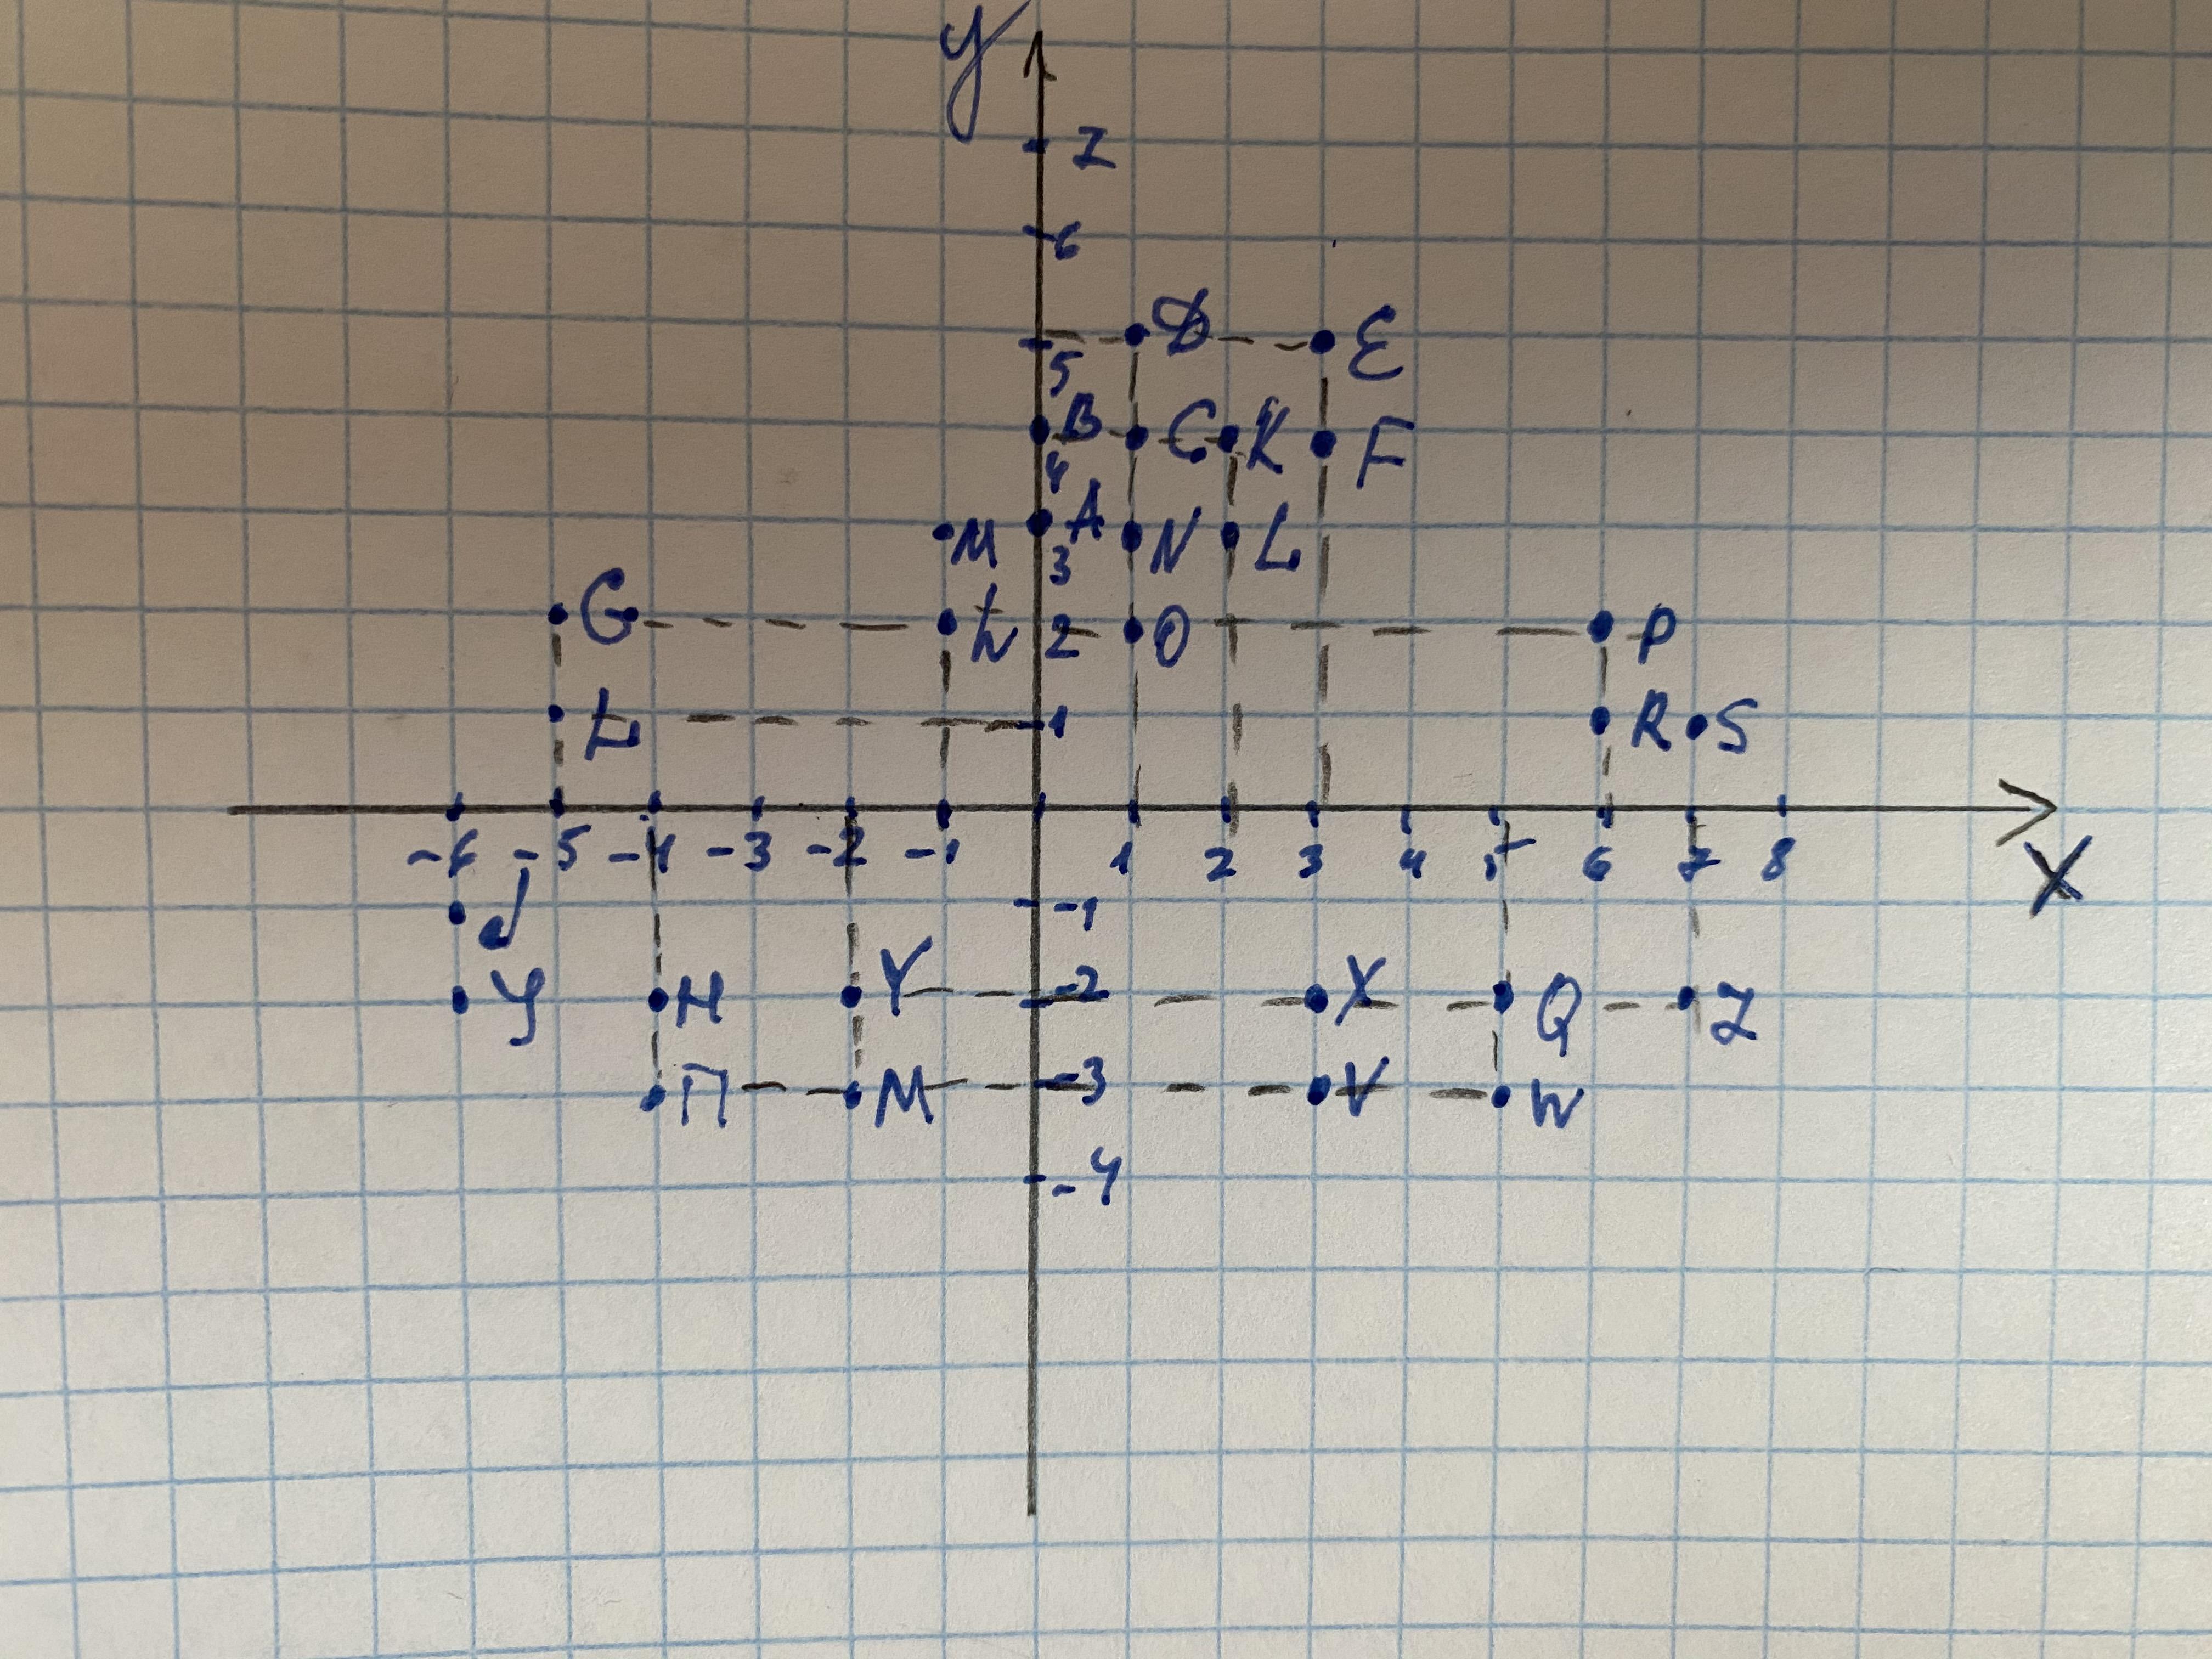 y
7
6
D E
5
B C K F
4
M A N L
3
G 2 O P
1 R S
-6 -5 -4 -3 -2 -1 1 2 3 4 5 6 7 8
X
-1
J
У H Y -2 X Q Z
П M -3 V W
-4